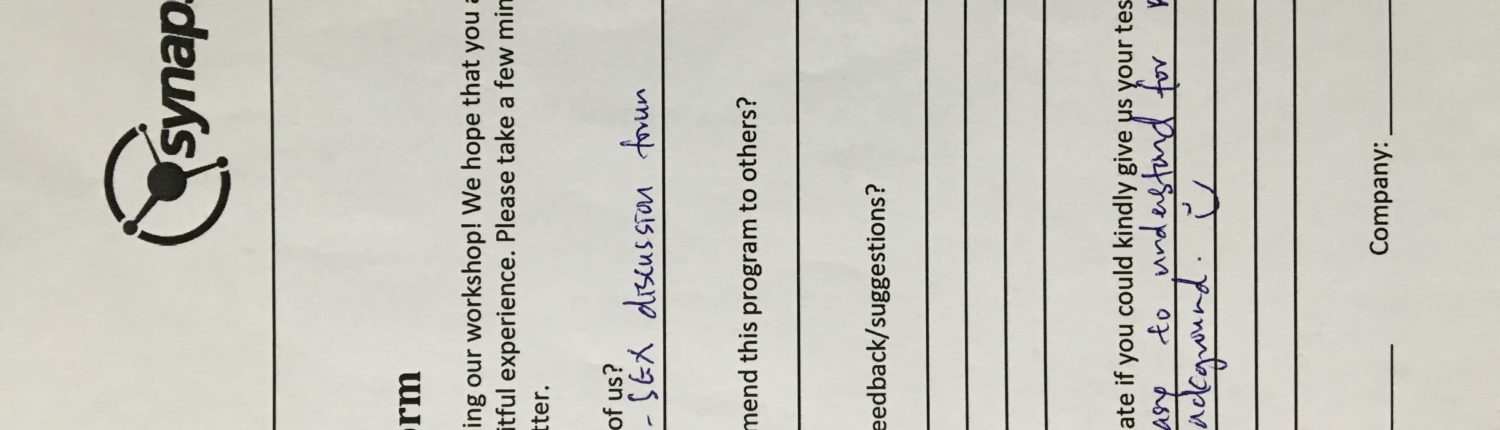 synaps
orm
ing our workshop! We hope that you a
itful experience. Please take a few min
tter.
of us?
- SGX discussion forum
mend this program to others?
eedback/suggestions?
ate if you could kindly give us your tes
asy to understand for
ackground.
Company: